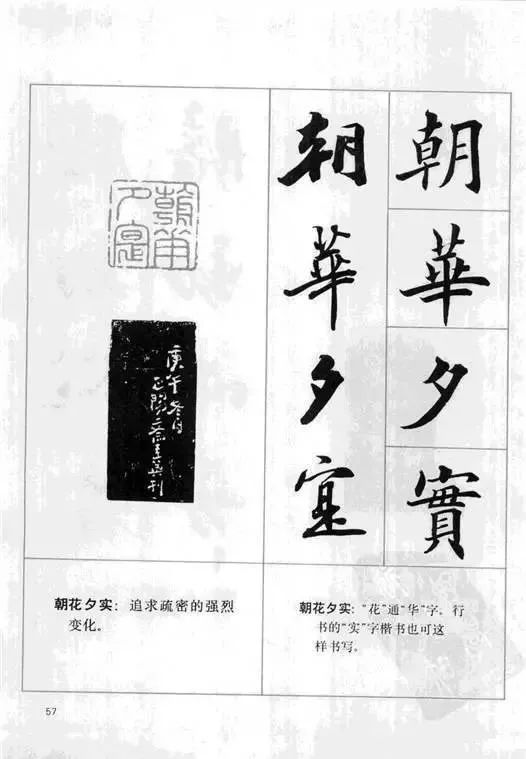 朝華夕實
朝華夕寔
庚午冬日
正陽齋主英刊
朝花夕实：追求疏密的强烈
变化。
朝花夕实：“花”通“华”字。行
书的“实”字楷书也可这
样书写。
57